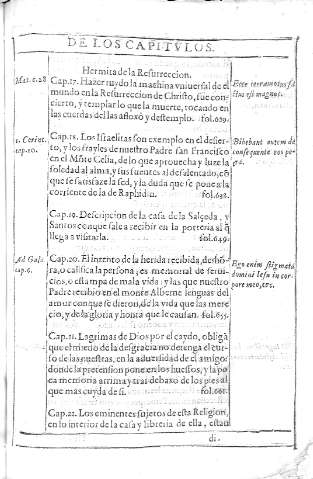 DE LOS CAPITVLOS.
Hermita de la Resurreccion.
Mat. c.28
Cap.17. Hazer ruydo la machina vniuersal de el
mundo en la Resurreccion de Christo, fue con
cierto, y templar lo que la muerte, tocando en
las cuerdas del las afloxò y destemplo. fol.029.
Ecce terramotus fa
ctus est magnus.
1. Corint.
cap.10.
Cap.18. Los Israelitas son exemplo en el desier-
to, y los frayles de nuestro Padre san Francisco
en el Mõte Celia, de lo que aprouecha y luze la
soledad al alma, y sus fuentes al desalentado, cõ
que se satisfaze la sed, y la duda que se pone a la
corriente de la de Raphidin. fol.638.
Bibebant autem de
consequente eos pe-
tra.
Cap.19. Descripcion de la casa de la Salçeda, y
Santos con que sale a recibir en la porteria al q̃
llega a visitarla. fol.649.
Ad Gala.
cap.6.
Cap.20. El intento de la herida recibida, deshõ
ra, o califica la persona; es memorial de serui-
cios, o estampa de mala vida: y las que nuestro
Padre recibio en el monte Alberne lenguas del
amor con que se dieron, de la vida que las mere
cio, y de la gloria y honra que le causan. fol.655.
Ego enim stigmata
domini Iesu in cor-
pore meo, etc.
Cap.21. Lagrimas de Dios por el caydo, obligã
que el miedo de la desgracia no detenga el cur-
so de las nuestras, en la aduersidad de el amigo:
donde la pretension pone en los huessos, y la po
ca memoria arrima y trae debaxo de los pies al
que mas cuyda de si. fol.666.
Cap.22. Los eminentes sujeros de esta Religion,
en lo interior de la casa y libreria de ella, estan
di-